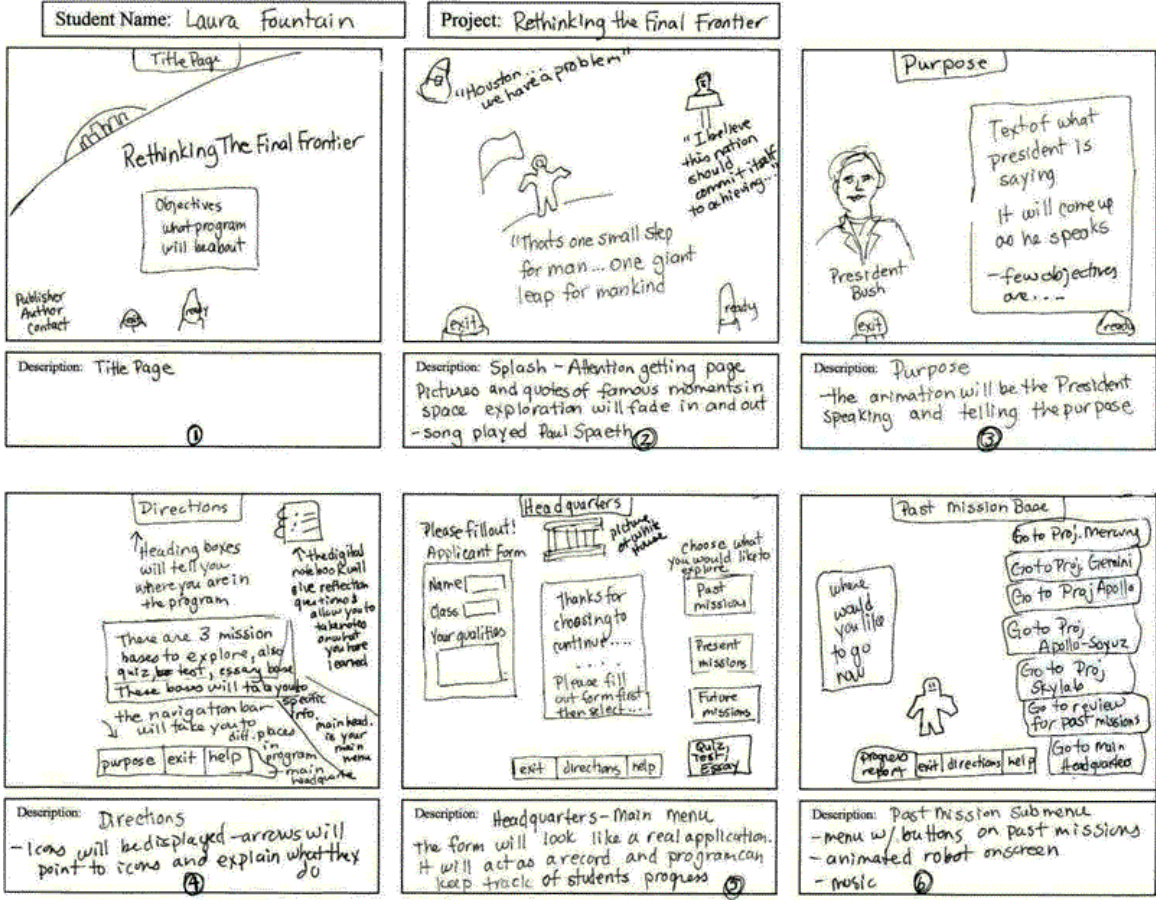 Student Name: Laura Fountain
Project: Rethinking the Final Frontier
Title Page
Rethinking The Final Frontier
Objectives
what program
will be about
Publisher
Author
Contact
exit
ready
Description: Title Page
1
"Houston...
we have a problem"
"I believe
this nation
should
commit itself
to achieving..."
"Thats one small step
for man... one giant
leap for mankind
exit
ready
Description: Splash - Attention getting page
Pictures and quotes of famous moments in
space exploration will fade in and out
- song played Paul Spaeth
2
Purpose
Text of what
president is
saying
It will come up
as he speaks
- few objectives
are....
President
Bush
exit
ready
Description: Purpose
- the animation will be the President
speaking and telling the purpose
3
Directions
Heading boxes
will tell you
where you are in
the program
the digital
notebook will
give reflection
questions &
allow you to
take notes
on what
you have
learned
There are 3 mission
bases to explore, also
quiz, test, essay base
These bases will take you to
specific
info.
the navigation bar
will take you to
diff. places
in
program
main head.
is your
main
menu
purpose exit help
main
headquarte
Description: Directions
- Icons will be displayed - arrows will
point to icons and explain what they
do
4
Headquarters
Please fill out!
Applicant Form
Name
Class
Your qualities
picture
of white
house
Thanks for
choosing to
continue....
....
Please fill
out form first
then select...
choose what
you would like to
explore
Past
missions
Present
missions
Future
missions
Quiz,
Test,
Essay
exit directions help
Description: Headquarters - Main menu
The form will look like a real application.
It will act as a record and program can
keep track of students progress
5
Past Mission Base
where
would
you like
to go
now
Go to Proj. Mercury
Go to Proj. Gemini
Go to Proj Apollo
Go to Proj,
Apollo-Soyuz
Go to Proj
Skylab
Go to review
for past missions
Go to main
Headquarters
progress
report
exit directions help
Description: Past Mission Submenu
- menu w/ buttons on past missions
- animated robot onscreen
- music
6